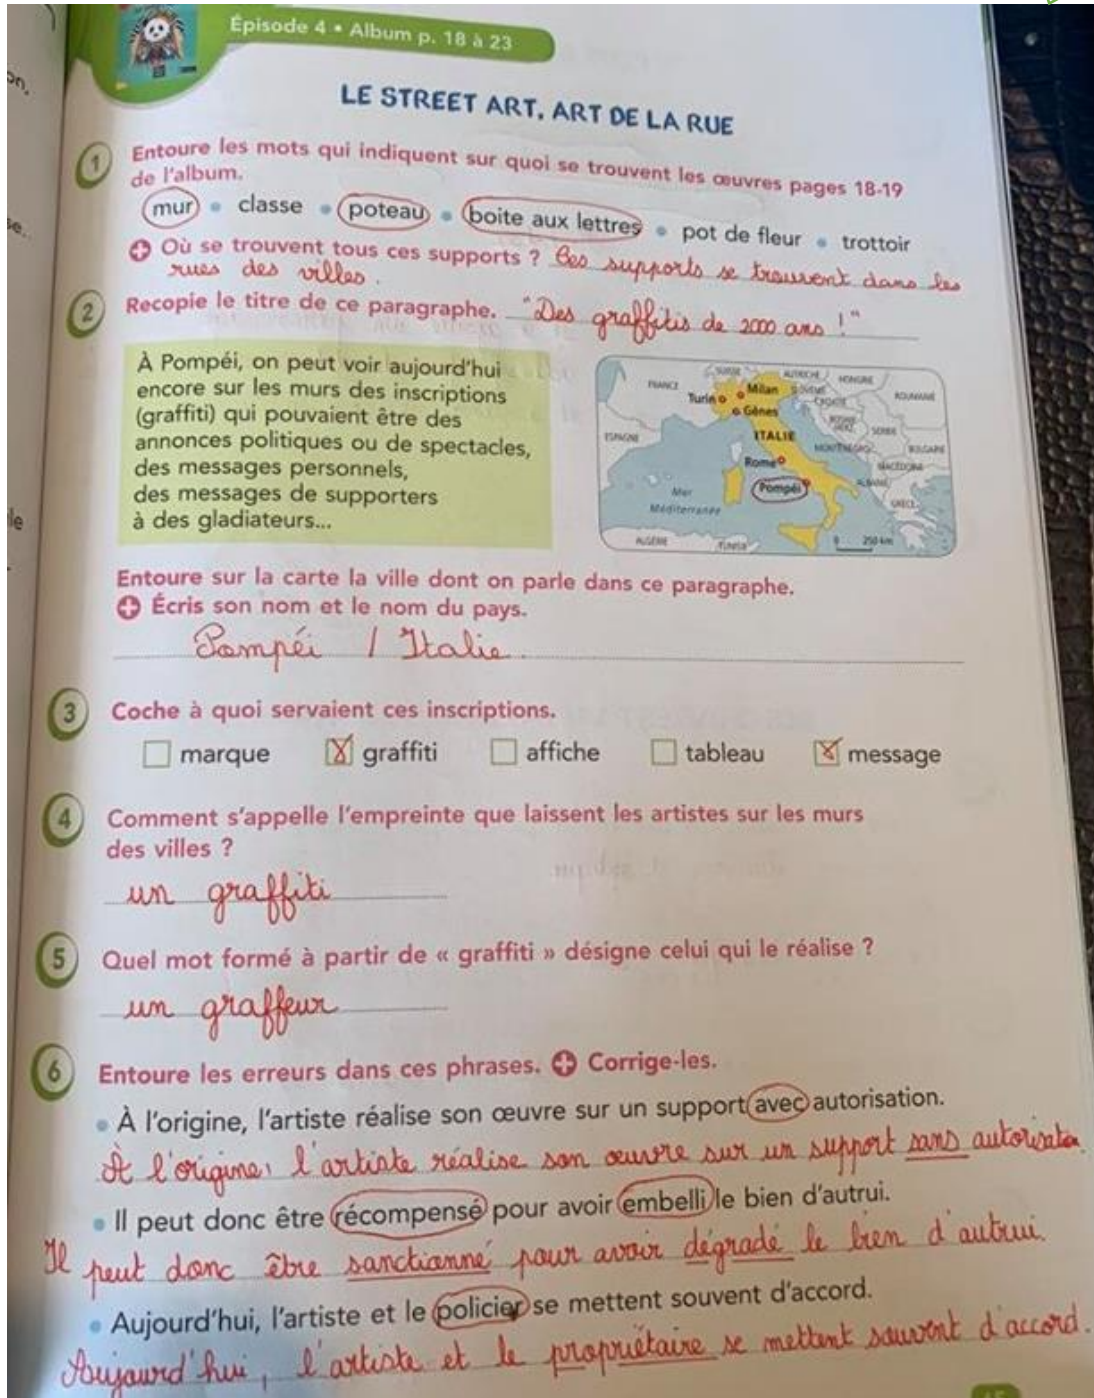 on,
Épisode 4 • Album p. 18 à 23
LE STREET ART, ART DE LA RUE
1 Entoure les mots qui indiquent sur quoi se trouvent les œuvres pages 18-19
de l'album.
mur • classe • poteau • boite aux lettres • pot de fleur • trottoir
se..
+ Où se trouvent tous ces supports ? Ces supports se trouvent dans les
rues des villes.
2 Recopie le titre de ce paragraphe. "Des graffitis de 2000 ans !"
À Pompéi, on peut voir aujourd'hui
encore sur les murs des inscriptions
(graffiti) qui pouvaient être des
annonces politiques ou de spectacles,
des messages personnels,
des messages de supporters
à des gladiateurs...
SUISSE AUTRICHE HONGRIE
FRANCE Milan SLOVÉNIE ROUMANIE
Turin CROATIE
Gênes
ESPAGNE ITALIE SERBIE
MONTÉNÉGRO BULGARIE
Rome MACÉDOINE
Pompéi ALBANIE
Mer GRÈCE
Méditerranée
ALGÉRIE TUNISIE 0 250 km
le
Entoure sur la carte la ville dont on parle dans ce paragraphe.
+ Écris son nom et le nom du pays.
Pompéi / Italie
3 Coche à quoi servaient ces inscriptions.
marque graffiti affiche tableau message
4 Comment s'appelle l'empreinte que laissent les artistes sur les murs
des villes ?
un graffiti
5 Quel mot formé à partir de « graffiti » désigne celui qui le réalise ?
un graffeur
6 Entoure les erreurs dans ces phrases. + Corrige-les.
• À l'origine, l'artiste réalise son œuvre sur un support avec autorisation.
À l'origine, l'artiste réalise son œuvre sur un support sans autorisation.
• Il peut donc être récompensé pour avoir embelli le bien d'autrui.
Il peut donc être sanctionné pour avoir dégradé le bien d'autrui.
• Aujourd'hui, l'artiste et le policier se mettent souvent d'accord.
Aujourd'hui, l'artiste et le propriétaire se mettent souvent d'accord.